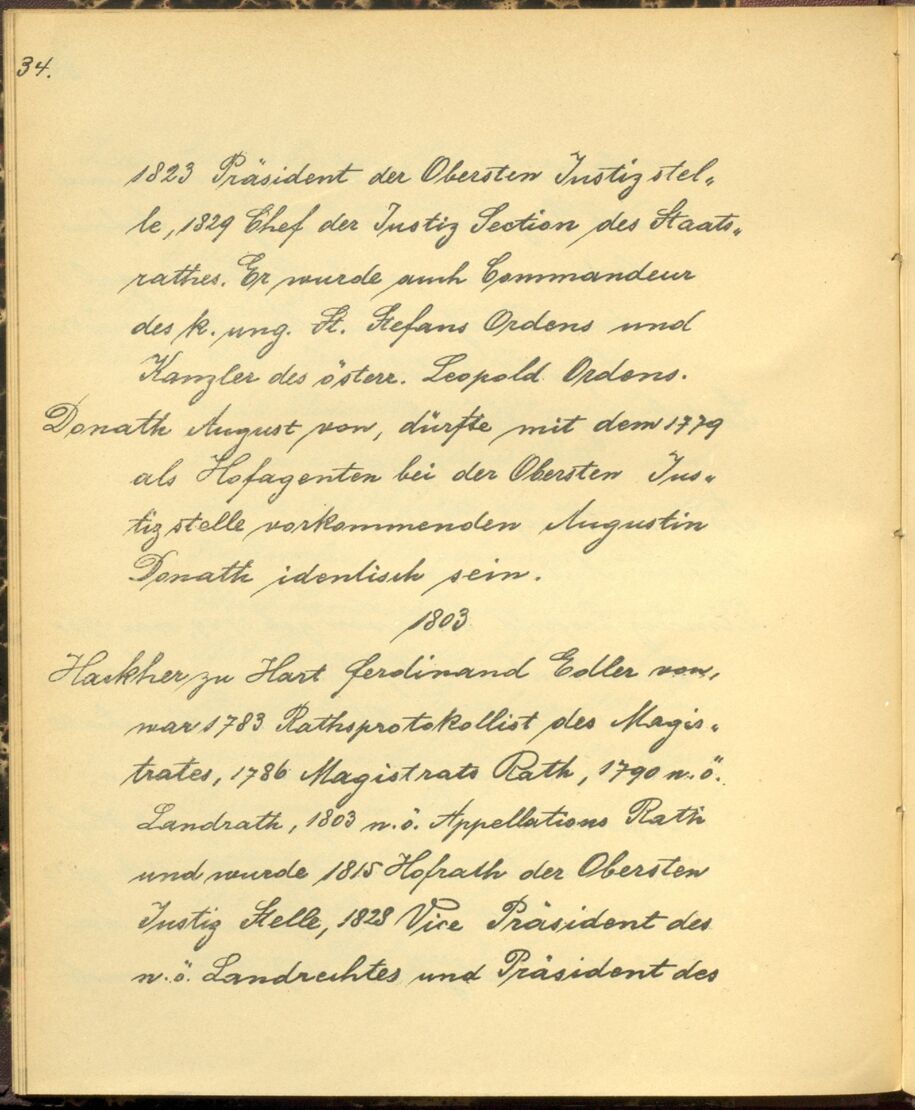 34.
1823 Präsident der Obersten Justizstel„
le, 1829 Chef der Justiz Section des Staats„
rathes. Er wurde auch Commandeur
des k. ung. St. Stefans Ordens und
Kanzler des österr. Leopold Ordens.
Donath August von, dürfte mit dem 1779
als Hofagenten bei der Obersten Jus„
tizstelle vorkommenden Augustin
Donath identisch sein.
1803
Hackher zu Hart Ferdinand Edler von,
war 1783 Rathsprotokollist des Magis„
trates, 1786 Magistrats Rath, 1790 n. ö.
Landrath, 1803 n. ö. Appellations Rath
und wurde 1815 Hofrath der Obersten
Justiz Stelle, 1828 Vice Präsident des
n. ö. Landrechtes und Präsident des